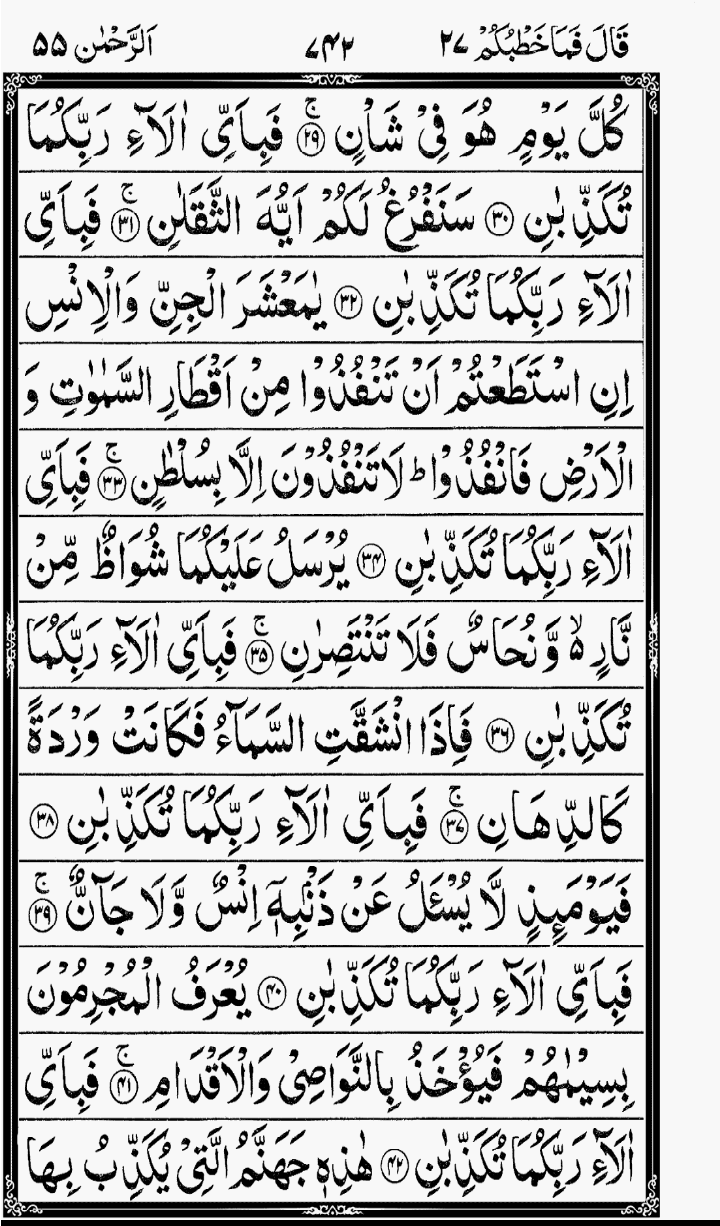 قَالَ فَمَا خَطْبُكُمْ ٢٧ ٧٤٢ اَلرَّحْمٰن ٥٥
كُلَّ يَوْمٍ هُوَ فِيْ شَاْنٍ ۚ‏﴿۲۹﴾ فَبِاَيِّ اٰلَآءِ رَبِّكُمَا
تُكَذِّبٰنِ ﴿۳۰﴾ سَنَفْرُغُ لَكُمْ اَيُّهَ الثَّقَلٰنِ ۚ‏﴿۳۱﴾ فَبِاَيِّ
اٰلَآءِ رَبِّكُمَا تُكَذِّبٰنِ ﴿۳۲﴾ يٰمَعْشَرَ الْجِنِّ وَالْاِنْسِ
اِنِ اسْتَطَعْتُمْ اَنْ تَنْفُذُوْا مِنْ اَقْطَارِ السَّمٰوٰتِ وَ
الْاَرْضِ فَانْفُذُوْا ؕ لَا تَنْفُذُوْنَ اِلَّا بِسُلْطٰنٍ ۚ‏﴿۳۳﴾ فَبِاَيِّ
اٰلَآءِ رَبِّكُمَا تُكَذِّبٰنِ ﴿۳۴﴾ يُرْسَلُ عَلَيْكُمَا شُوَاظٌ مِّنْ
نَّارٍ ۙ۬ وَّ نُحَاسٌ فَلَا تَنْتَصِرٰنِ ۚ‏﴿۳۵﴾ فَبِاَيِّ اٰلَآءِ رَبِّكُمَا
تُكَذِّبٰنِ ﴿۳۶﴾ فَاِذَا انْشَقَّتِ السَّمَآءُ فَكَانَتْ وَرْدَةً
كَالدِّهَانِ ۚ‏﴿۳۷﴾ فَبِاَيِّ اٰلَآءِ رَبِّكُمَا تُكَذِّبٰنِ ﴿۳۸﴾
فَيَوْمَىِٕذٍ لَّا يُسْـَٔلُ عَنْ ذَنْۢبِهٖۤ اِنْسٌ وَّلَا جَآنٌّ ۚ‏﴿۳۹﴾
فَبِاَيِّ اٰلَآءِ رَبِّكُمَا تُكَذِّبٰنِ ﴿۴۰﴾ يُعْرَفُ الْمُجْرِمُوْنَ
بِسِيْمٰىهُمْ فَيُؤْخَذُ بِالنَّوَاصِيْ وَالْاَقْدَامِ ۚ‏﴿۴۱﴾ فَبِاَيِّ
اٰلَآءِ رَبِّكُمَا تُكَذِّبٰنِ ﴿۴۲﴾ هٰذِهٖ جَهَنَّمُ الَّتِيْ يُكَذِّبُ بِهَا